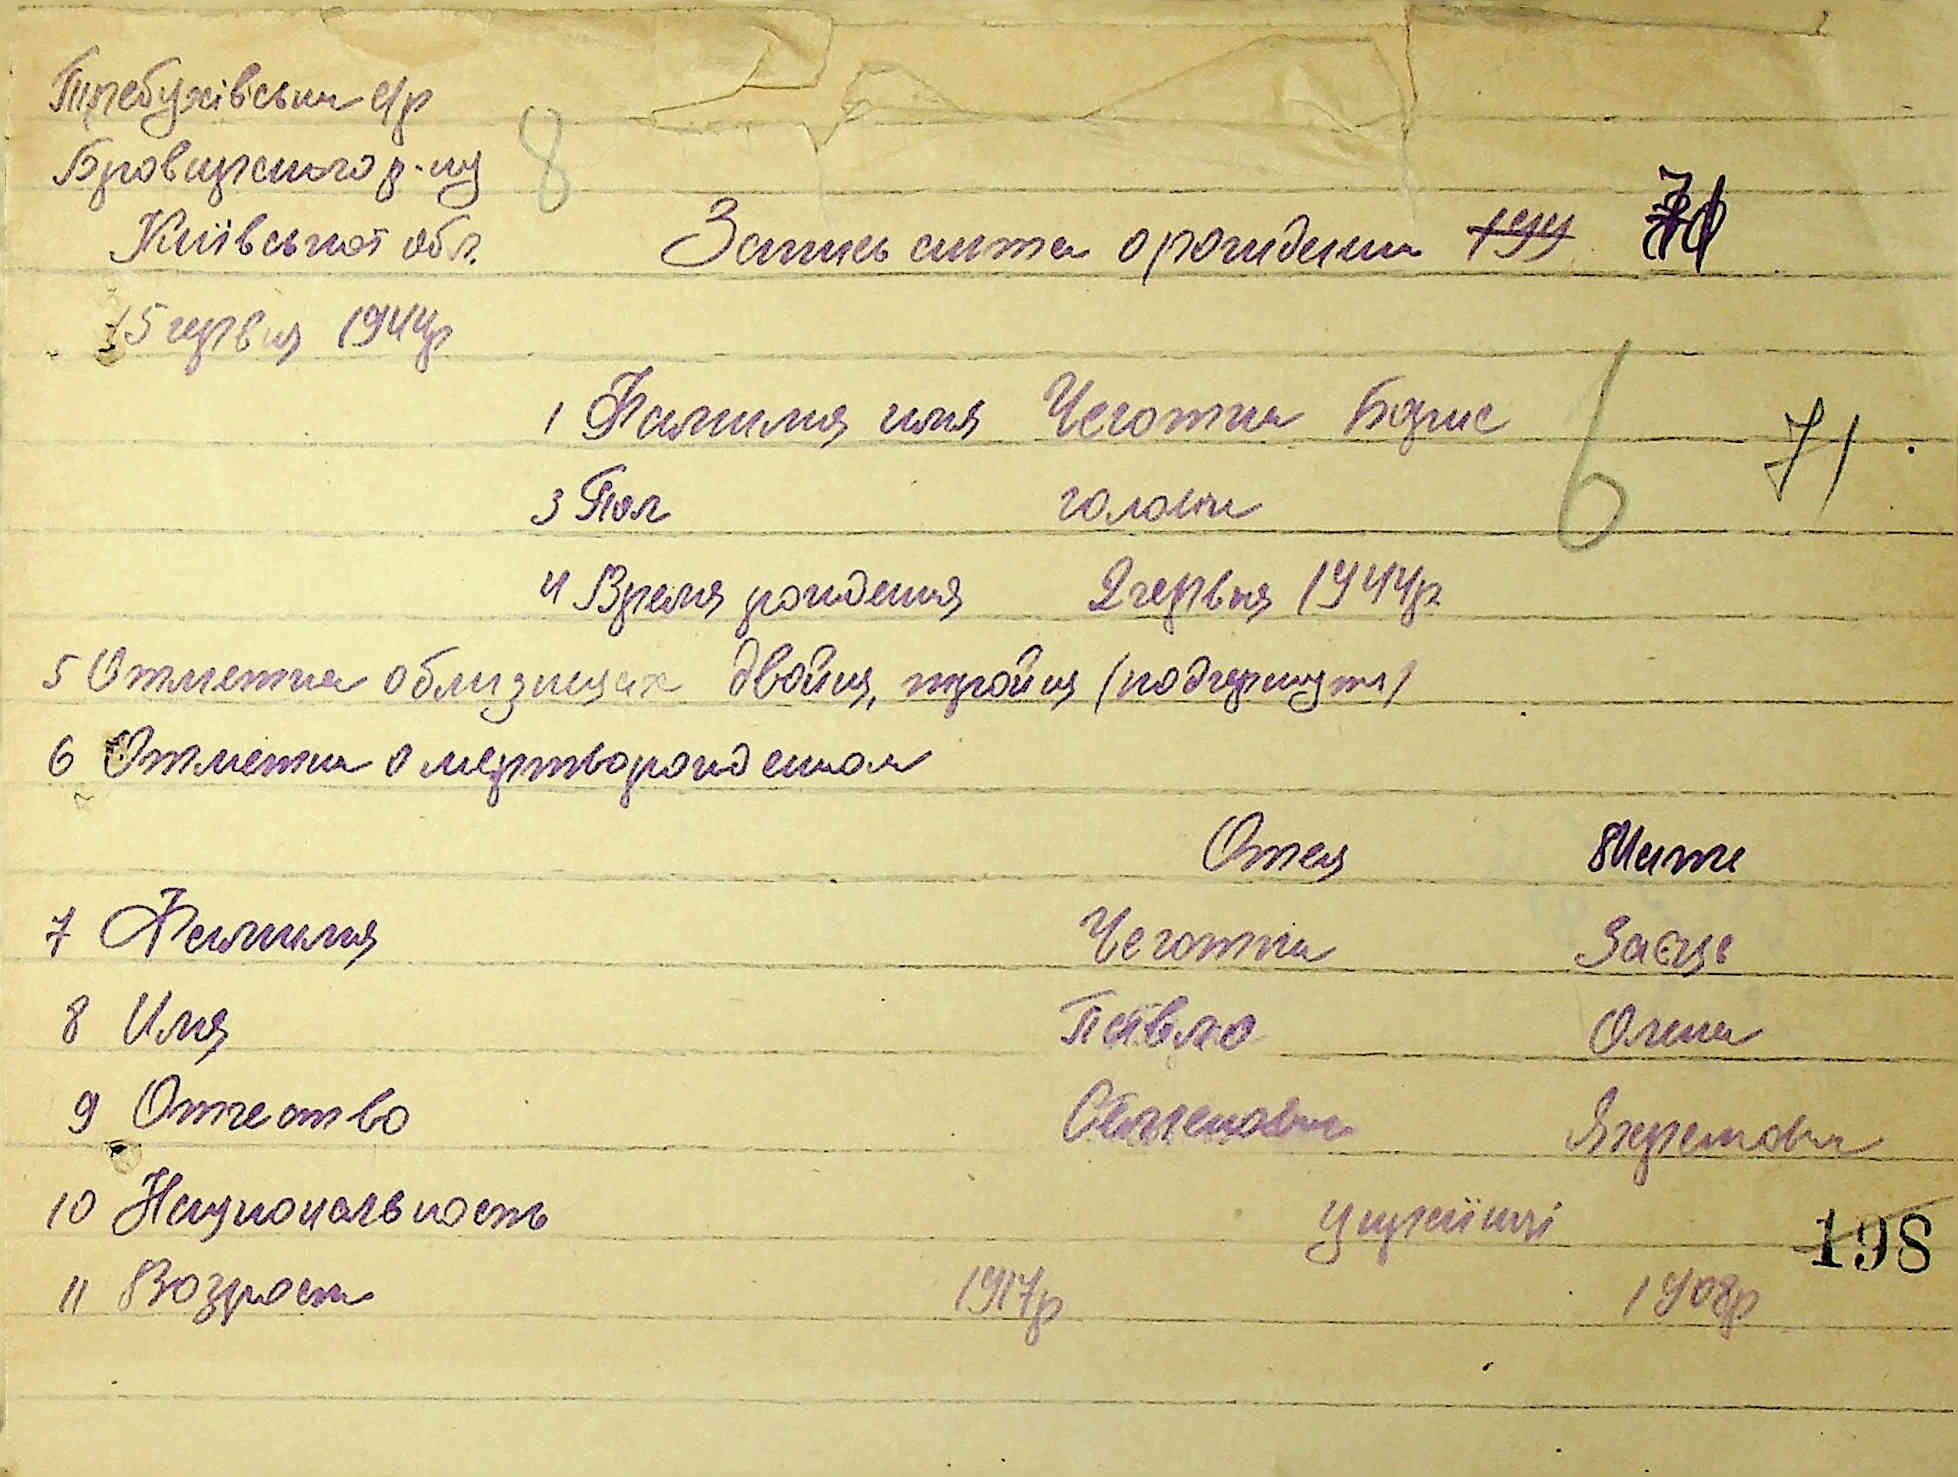 Требухівська с/р
Броварського р-ну 8
Київської обл.
Запись акта о рождении 71
15 червня 1944р
1 Фамилия имя Чеготка Борис 6 71
3 Пол
4 Время рождения 2 червня 1944р
5 Отметка о близнецах двойня, тройня (подчеркнуть)
6 Отметка о мертворожденном
Отец Мати
7 Фамилия Чеготка Заєць
8 Имя Павло Олена
9 Отчество Семенович
10 Национальность українці 198
11 Возраст 1917р 1908р